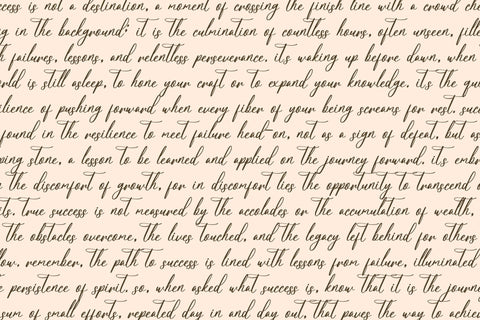 ccess is not a destination, a moment of crossing the finish line with a crowd che
g in the background; it is the culmination of countless hours, often unseen, fille
h failures, lessons, and relentless perseverance. it's waking up before dawn, when
orld is still asleep, to hone your craft or to expand your knowledge. it's the qu
silience of pushing forward when every fiber of your being screams for rest. suc
found in the resilience to meet failure head-on, not as a sign of defeat, but as
ping stone, a lesson to be learned and applied on the journey forward. it's embr
the discomfort of growth, for in discomfort lies the opportunity to transcend o
its. true success is not measured by the accolades or the accumulation of wealth,
the obstacles overcome, the lives touched, and the legacy left behind for others
low. remember, the path to success is lined with lessons from failure, illuminated
e persistence of spirit. so, when asked what success is, know that it is the journe
sum of small efforts, repeated day in and day out, that paves the way to achie